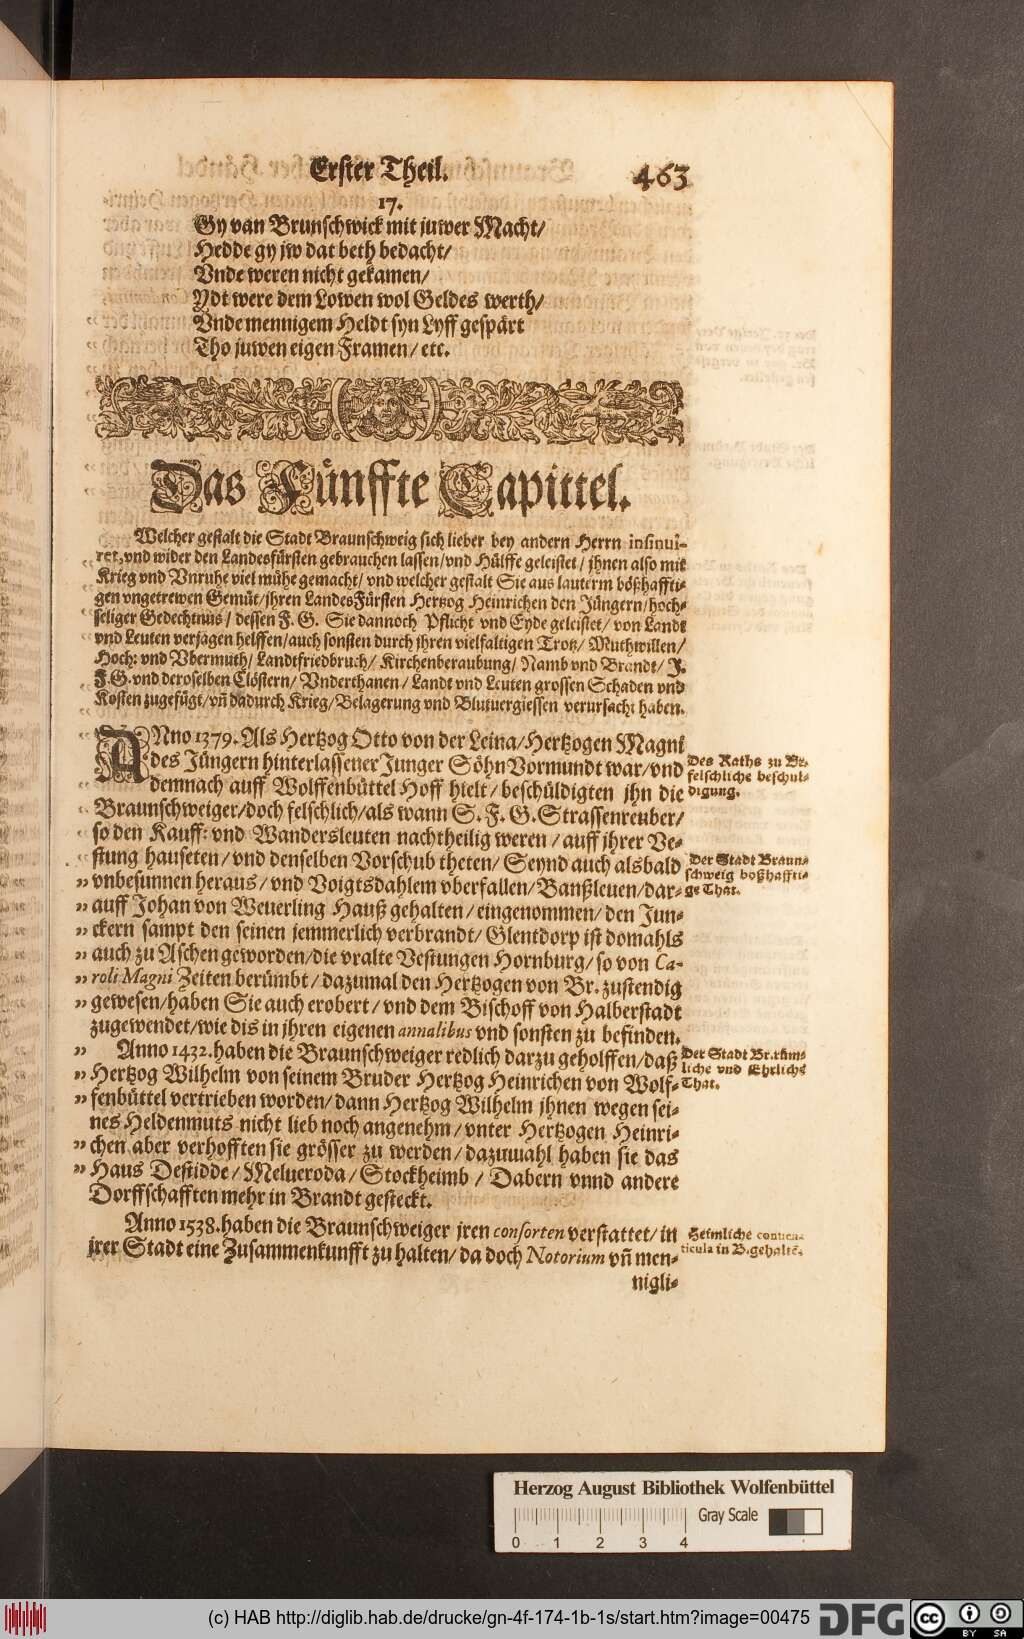 Erster Theil. 463
17.
Gy van Brunschwick mit juwer Macht/
Hedde gy jw dat beth bedacht/
Vnde weren nicht gekamen/
Ydt were dem Lowen wol Geldes werth/
Vnde mennigem Heldt syn Lyff gespårt
Tho juwen eigen Framen/ etc.
Das Fünffte Capittel.
Welcher gestalt die Stadt Braunschweig sich lieber bey andern Herrn insinui-
ret, vnd wider den Landesfürsten gebrauchen lassen/vnd Hülffe geleistet/ jhnen also mit
Krieg vnd Vnruhe viel mühe gemacht/ vnd welcher gestalt Sie aus lauterm bößhaffti-
gen vngetrewen Gemüt/jhren LandesFürsten Hertzog Heinrichen den Jüngern/hoch-
seliger Gedechtnus/ dessen F. G. Sie dannoch Pflicht vnd Eyde geleistet/ von Landt
vnd Leuten verjagen helffen/auch sonsten durch jhren vielfaltigen Trotz/ Muthwillen/
Hoch: vnd Vbermuth/ Landtfriedbruch/ Kirchenberaubung/ Namb vnd Brandt/ J.
F. G. vnd deroselben Clöstern/ Vnderthanen/ Landt vnd Leuten grossen Schaden vnd
Kosten zugefügt/ vñ dadurch Krieg/Belagerung vnd Blutuergiessen verursacht haben.
ANno 1379. Als Hertzog Otto von der Leina/Hertzogen Magni
des Jüngern hinterlassener Junger Söhn Vormundt war/vnd
demnach auff Wolffenbüttel Hoff hielt/ beschüldigten jhn die
Braunschweiger/doch felschlich/als wann S. F. G. Strassenreuber/
so den Kauff: vnd Wandersleuten nachtheilig weren/ auff jhrer Ve-
stung hauseten/vnd denselben Vorschub theten/ Seynd auch alsbald
„ vnbesunnen heraus/ vnd Voigtsdahlem vberfallen/Banßleuen/dar-
„ auff Johan von Weuerling Hauß gehalten/eingenommen/ den Jun-
„ ckern sampt den seinen jemmerlich verbrandt/ Glentdorp ist domahls
„ auch zu Aschen geworden/die vralte Vestungen Hornburg/ so von Ca-
„ roli Magni Zeiten berümbt/ dazumal den Hertzogen von Br. zustendig
„ gewesen/haben Sie auch erobert/ vnd dem Bischoff von Halberstadt
zugewendet/wie dis in jhren eigenen annalibus vnd sonsten zu befinden.
„ Anno 1432. haben die Braunschweiger redlich darzu geholffen/daß
„ Hertzog Wilhelm von seinem Bruder Hertzog Heinrichen von Wolf-
„ fenbüttel vertrieben worden/ dann Hertzog Wilhelm jhnen wegen sei-
nes Heldenmuts nicht lieb noch angenehm/vnter Hertzogen Heinri-
„ chen aber verhofften sie grösser zu werden/dazumahl haben sie das
„ Haus Destidde/ Melueroda/ Stockheimb/ Dabern vnnd andere
Dorffschafften mehr in Brandt gesteckt.
Anno 1538. haben die Braunschweiger jren consorten verstattet/ in
jrer Stadt eine Zusammenkunfft zu halten/da doch Notorium vñ men-
nigli-
Des Raths zu Br.
felschliche beschul-
digung.
Der Stadt Braun-
schweig boßhaffti-
ge That.
Der Stadt Br. rüm-
liche vnd Ehrliche
That.
Heimliche conuen-
ticula in B. gehaltē.
Herzog August Bibliothek Wolfenbüttel
Gray Scale
0 1 2 3 4
(c) HAB http://diglib.hab.de/drucke/gn-4f-174-1b-1s/start.htm?image=00475
DFG
cc
BY SA